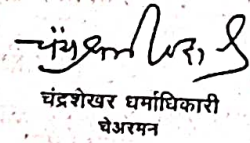 चंद्रशेखर धर्माधिकारी
चेअरमन